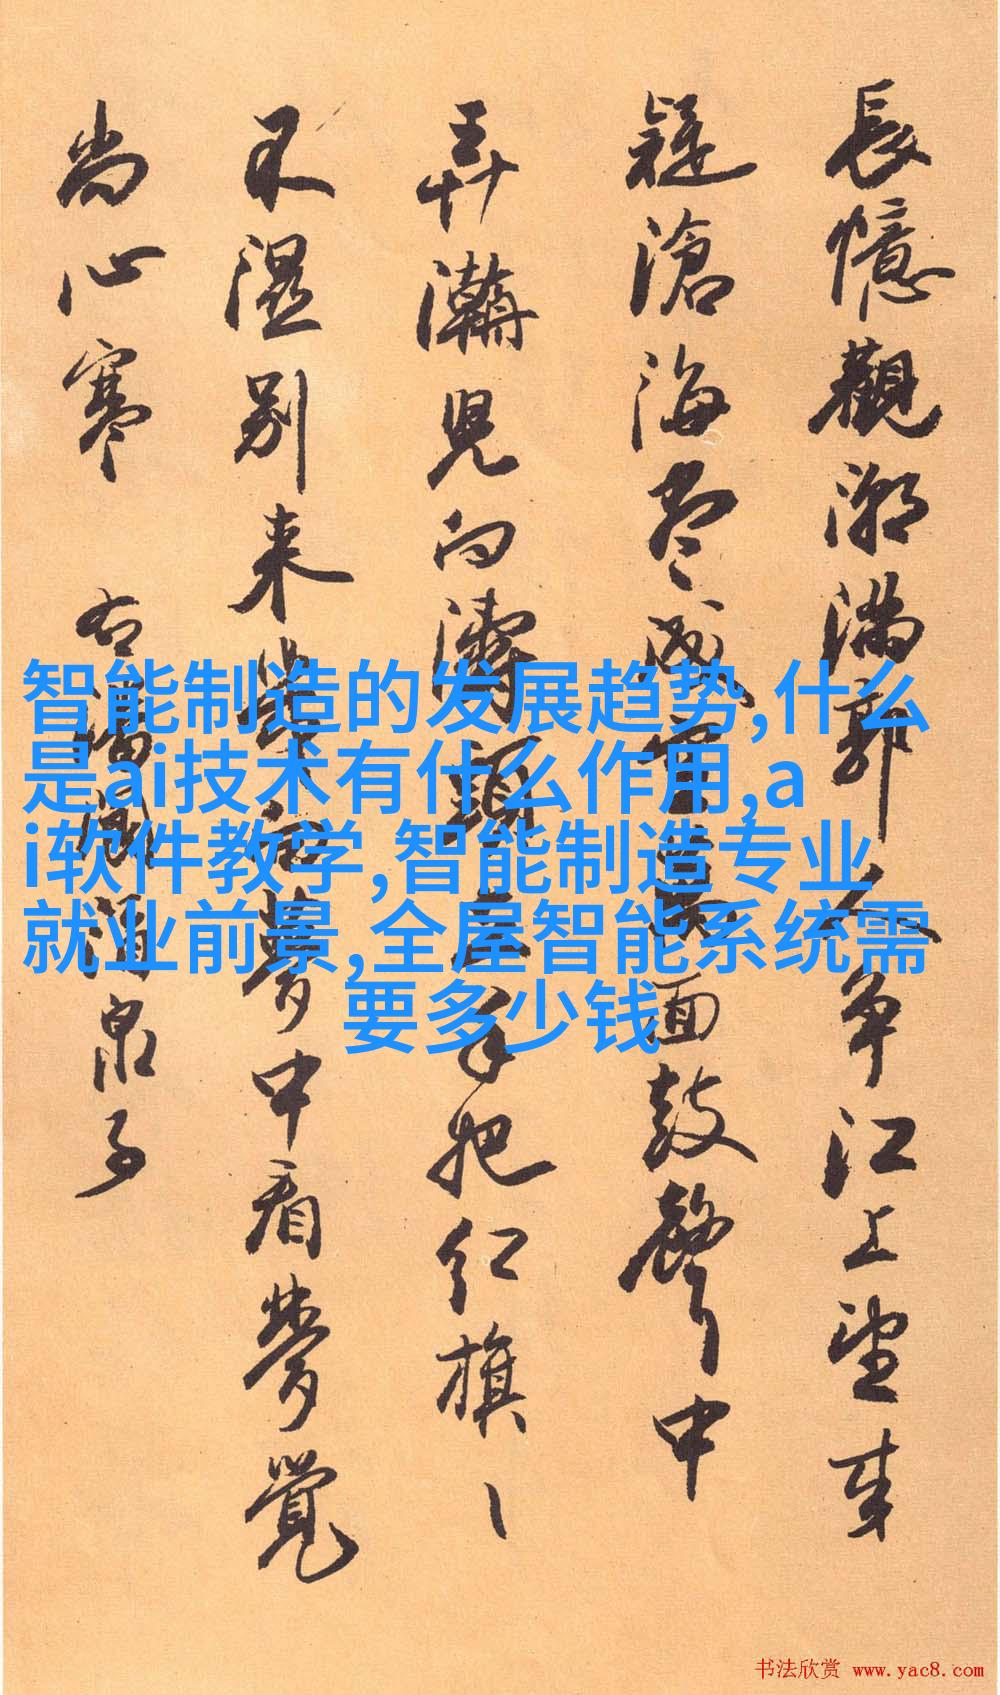 長憶觀潮滿郭人爭江上望来
疑滄海尽成空萬面鼓聲中
弄濤児向濤頭立手把红旗〻
不濕别来幾向夢中看夢覺
尚心寒 右潘閬酒泉子
智能制造的发展趋势,什么
是ai技术有什么作用,a
i软件教学,智能制造专业
就业前景,全屋智能系统需
要多少钱
书法欣赏 www.yac8.com